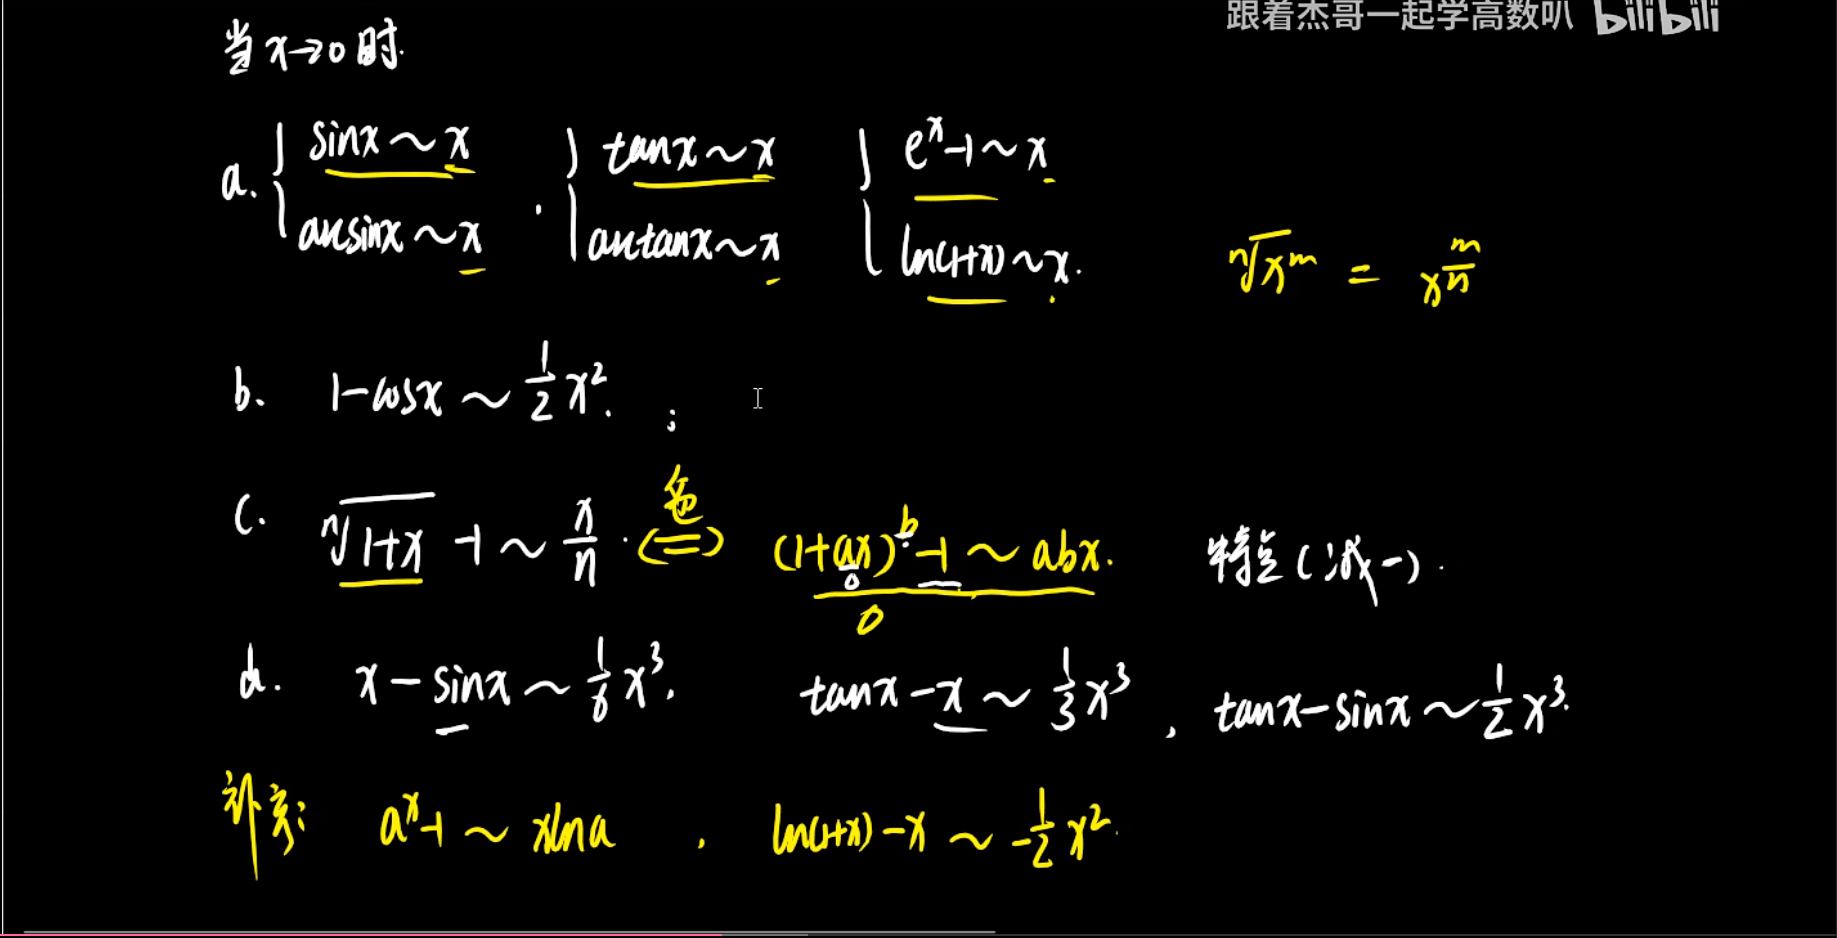 跟着杰哥一起学高数叭 bilibili
当x→0时.
a. { sinx ~ x . { tanx ~ x { eˣ-1 ~ x
arcsinx ~ x arctanx ~ x ln(1+x) ~ x.
ⁿ√xᵐ = x^(m/n)
b. 1-cosx ~ 1/2 x². ;
c. ⁿ√(1+x) -1 ~ x/n . (=) (1+ax)ᵇ-1 ~ abx. 特点(减一).
0
0
d. x-sinx ~ 1/6 x³. tanx-x ~ 1/3 x³ , tanx-sinx ~ 1/2 x³.
补充: aˣ-1 ~ xlna , ln(1+x)-x ~ -1/2 x².